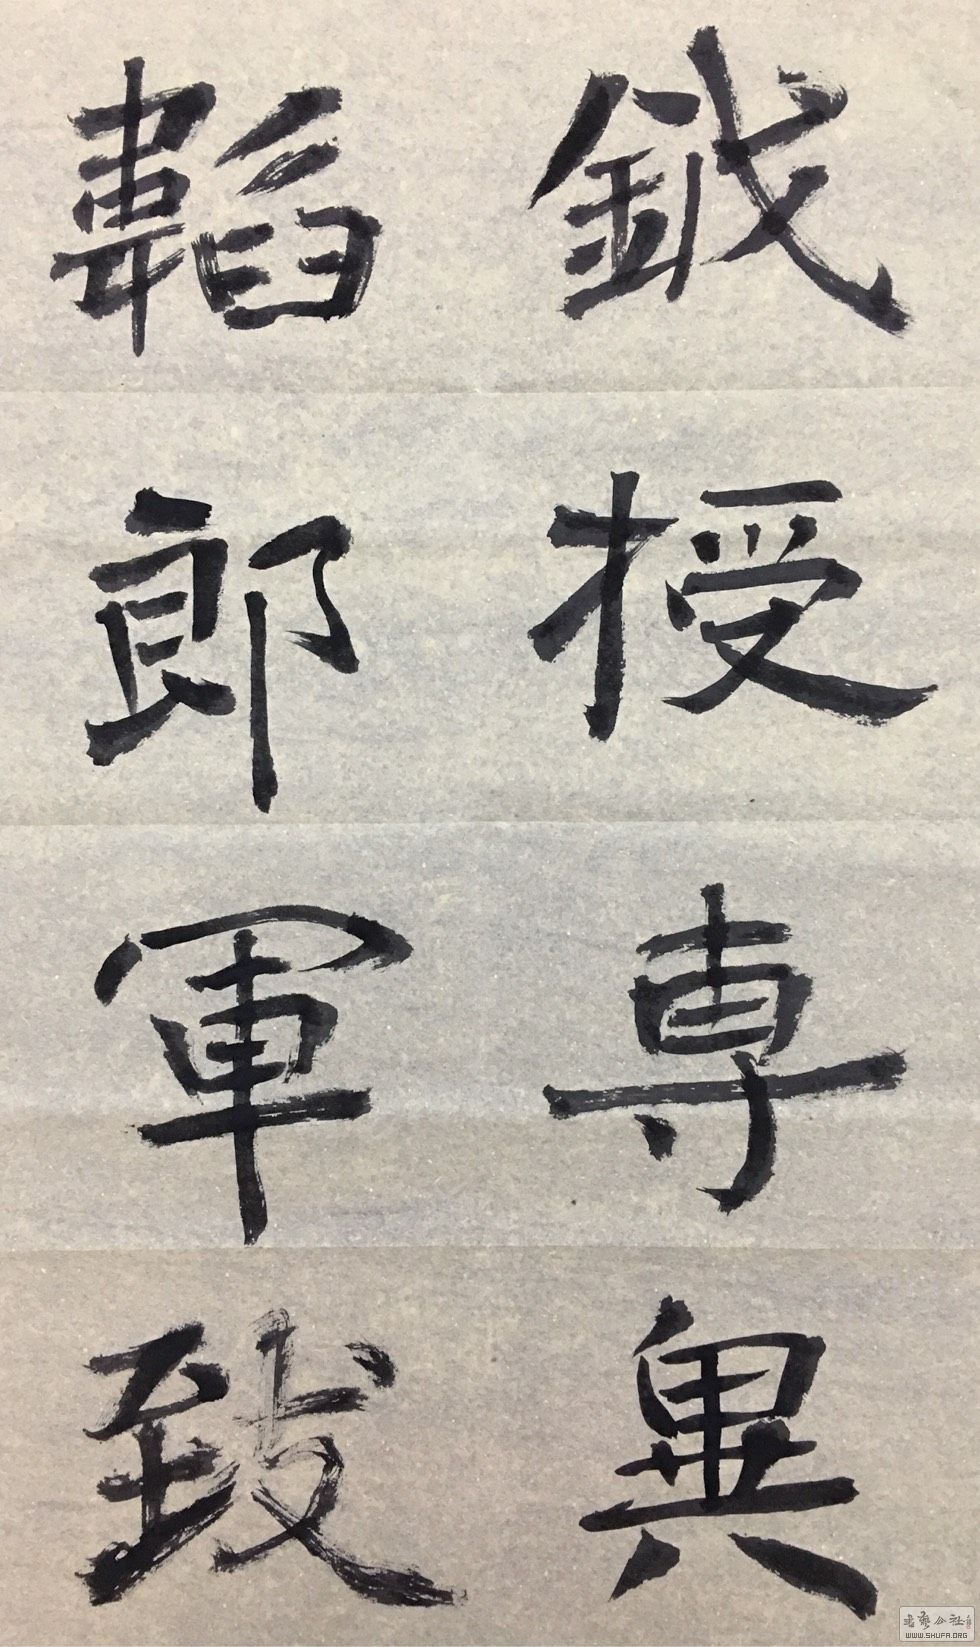 鉞授專異
韜郎軍致
书艺公社
WWW.SHUFA.ORG